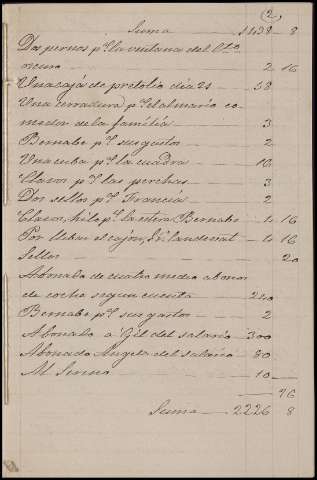 (2)
Suma 1438 8
Dos pernos pª la ventana del Cto
oscuro 2 16
Una caja de pretolio dia 21 58
Una cerradura pª el almario co-
medor de la familia 3
Bernabe pª sus gastos 2
Una cuba pª la cuadra 10
Clavos pª las perchas 3
Dos sellos pª Francia 2
Clavos, hilo pª la estera Bernabe 4 16
Por llebar el cajon, Sr. 4 16
Sellos 20
Abonado de cuatro medio abonos
de coche segun cuenta 240
Bernabe pª sus gastos 2
Abonado a Gil del salario 300
Abonado Angela del salario 80
Al Sereno 10
76
Suma 2226 8